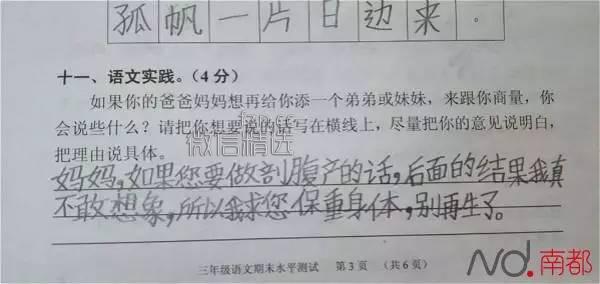 孤帆一片日边来。
十一、语文实践。(4分)
如果你的爸爸妈妈想再给你添一个弟弟或妹妹，来跟你商量，你
会说些什么？请把你想要说的话写在横线上，尽量把你的意见说明白，
把理由说具体。
微信精选
妈妈，如果您要做剖腹产的话，后面的结果我真
不敢想象，所以我求您保重身体，别再生了。
三年级语文期末水平测试 第3页 (共6页)
Nd.南都